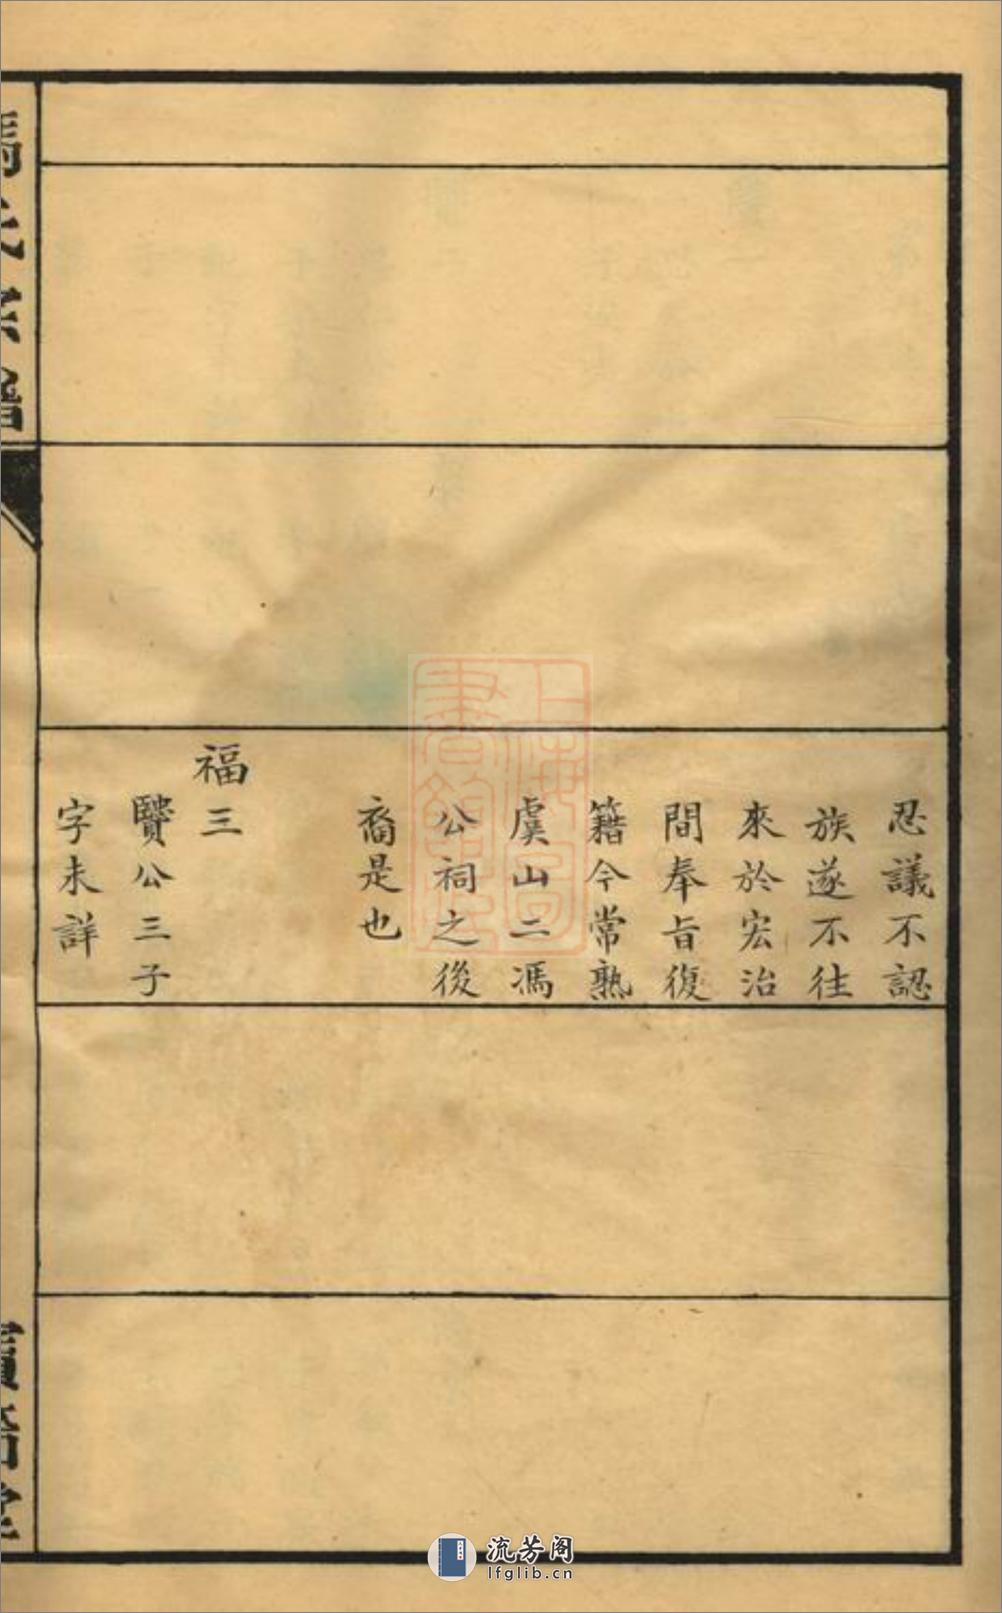 忍議不認
族遂不往
來於宏治
間奉旨復
籍今常熟
虞山二馮
公祠之後
裔是也
福三
賢公三子
字未詳
上海圖書館藏
流芳阁
lfglib.cn